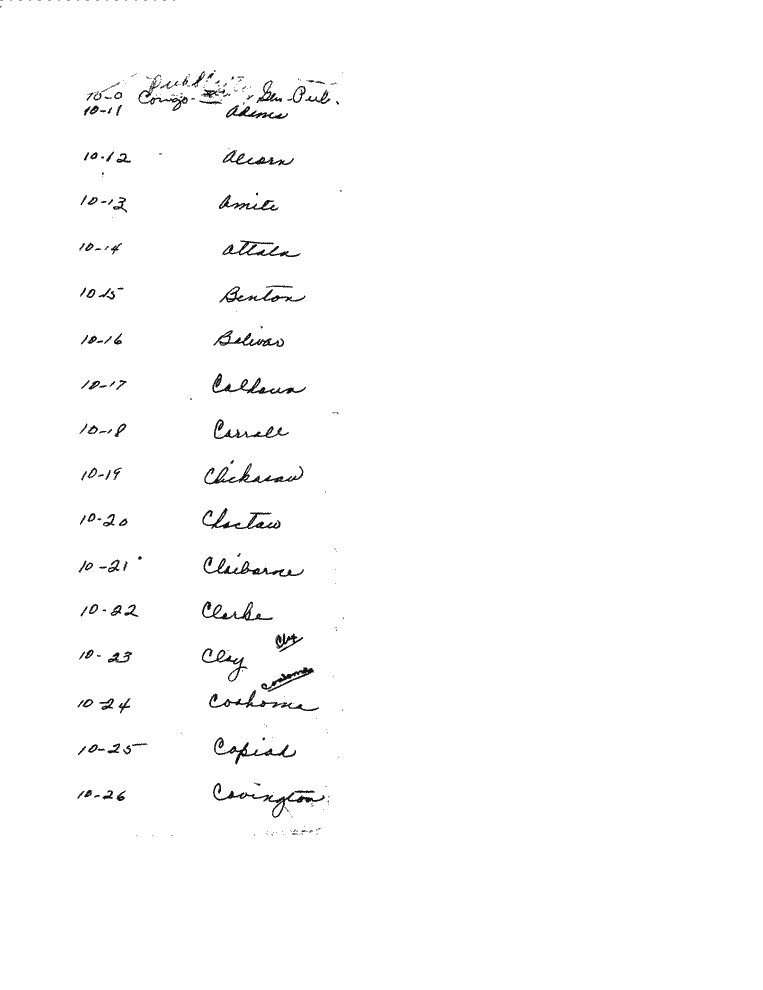 10-0 Congo- & Gen-Pub.
10-11 Adams
10-12 Alcorn
10-13 Amite
10-14 Attala
10-15 Benton
10-16 Bolivar
10-17 Calhoun
10-18 Carroll
10-19 Chickasaw
10-20 Choctaw
10-21 Claiborne
10-22 Clarke
Clay
10-23 Clay
Coahoma
10-24 Coahoma
10-25 Copiah
10-26 Covington